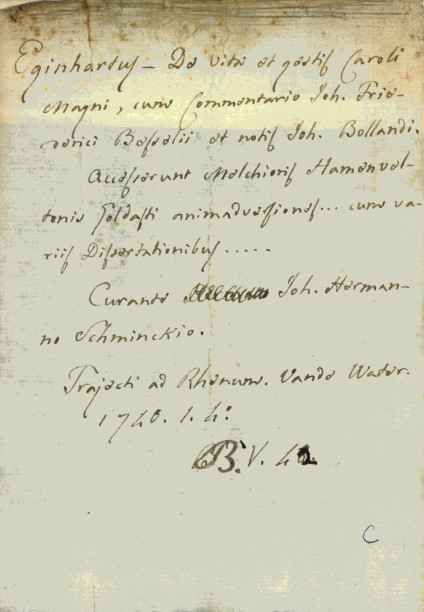 Eginhartus – De vita et gestis Caroli
Magni, cum Commentario Joh. Frie-
derici Besselii et notis Joh. Bollandi.
Accesserunt Melchioris Hamenvel-
tonis Goldasti animadversiones... cum va-
riis Dissertationibus.....
Curante Joh. Herman-
no Schminckio.
Trajecti ad Rhenum. Vande Water.
1740. 1. 4º
B. V. 4
C